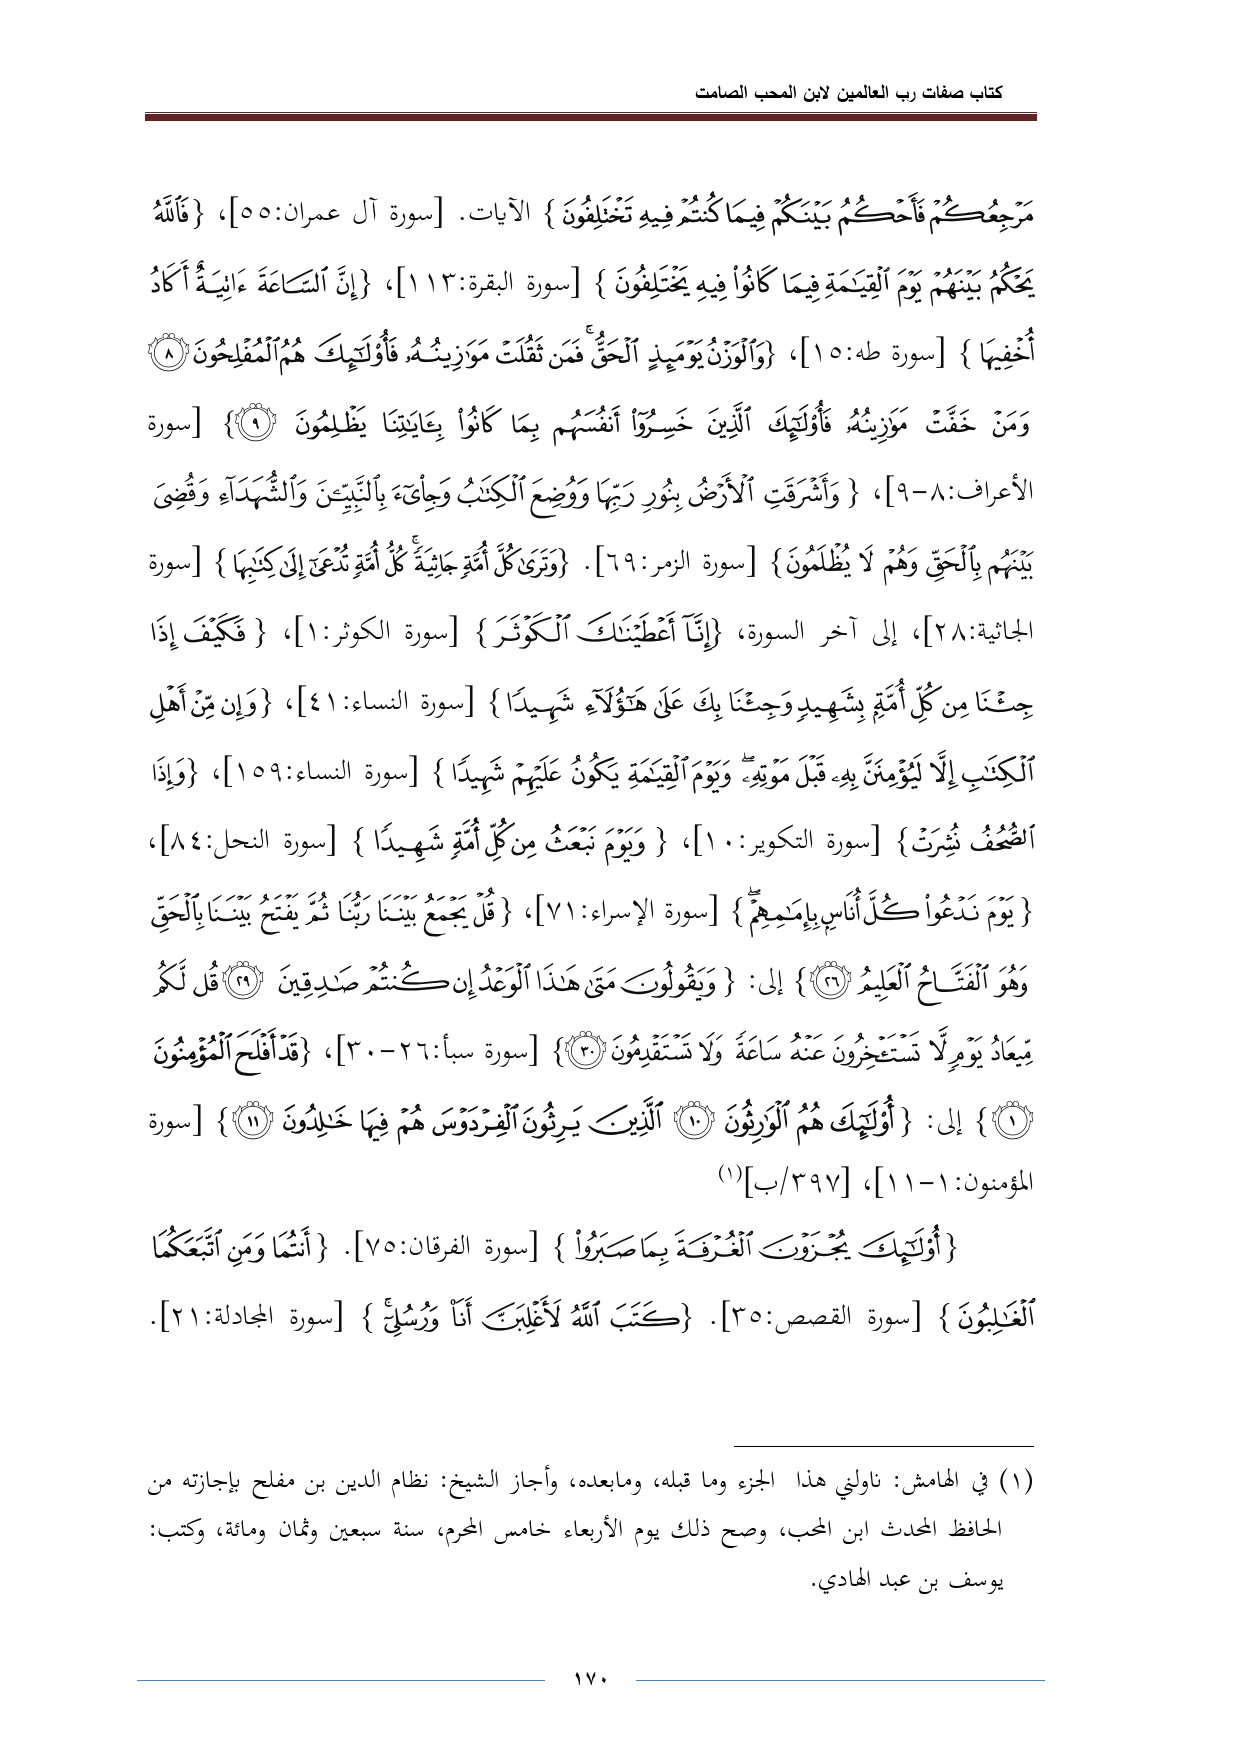 كتاب صفات رب العالمين لابن المحب الصامت
مَرْجِعُكُمْ فَأَحْكُمُ بَيْنَكُمْ فِيمَا كُنتُمْ فِيهِ تَخْتَلِفُونَ } الآيات. [سورة آل عمران:٥٥]، {فَٱللَّهُ
يَحْكُمُ بَيْنَهُمْ يَوْمَ ٱلْقِيَٰمَةِ فِيمَا كَانُوا۟ فِيهِ يَخْتَلِفُونَ } [سورة البقرة:١١٣]، {إِنَّ ٱلسَّاعَةَ ءَاتِيَةٌ أَكَادُ
أُخْفِيهَا } [سورة طه:١٥]، {وَٱلْوَزْنُ يَوْمَئِذٍ ٱلْحَقُّ ۚ فَمَن ثَقُلَتْ مَوَٰزِينُهُۥ فَأُو۟لَٰٓئِكَ هُمُ ٱلْمُفْلِحُونَ ٨
وَمَنْ خَفَّتْ مَوَٰزِينُهُۥ فَأُو۟لَٰٓئِكَ ٱلَّذِينَ خَسِرُوٓا۟ أَنفُسَهُم بِمَا كَانُوا۟ بِـَٔايَٰتِنَا يَظْلِمُونَ ٩} [سورة
الأعراف:٨-٩]، { وَأَشْرَقَتِ ٱلْأَرْضُ بِنُورِ رَبِّهَا وَوُضِعَ ٱلْكِتَٰبُ وَجِا۟ىٓءَ بِٱلنَّبِيِّـۧنَ وَٱلشُّهَدَآءِ وَقُضِىَ
بَيْنَهُم بِٱلْحَقِّ وَهُمْ لَا يُظْلَمُونَ} [سورة الزمر:٦٩]. {وَتَرَىٰ كُلَّ أُمَّةٍ جَاثِيَةً ۚ كُلُّ أُمَّةٍ تُدْعَىٰٓ إِلَىٰ كِتَٰبِهَا } [سورة
الجاثية:٢٨]، إلى آخر السورة، {إِنَّآ أَعْطَيْنَٰكَ ٱلْكَوْثَرَ } [سورة الكوثر:١]، { فَكَيْفَ إِذَا
جِئْنَا مِن كُلِّ أُمَّةٍۭ بِشَهِيدٍ وَجِئْنَا بِكَ عَلَىٰ هَٰٓؤُلَآءِ شَهِيدًا } [سورة النساء:٤١]، {وَإِن مِّنْ أَهْلِ
ٱلْكِتَٰبِ إِلَّا لَيُؤْمِنَنَّ بِهِۦ قَبْلَ مَوْتِهِۦ ۖ وَيَوْمَ ٱلْقِيَٰمَةِ يَكُونُ عَلَيْهِمْ شَهِيدًا } [سورة النساء:١٥٩]، {وَإِذَا
ٱلصُّحُفُ نُشِرَتْ} [سورة التكوير:١٠]، { وَيَوْمَ نَبْعَثُ مِن كُلِّ أُمَّةٍ شَهِيدًا } [سورة النحل:٨٤]،
{ يَوْمَ نَدْعُوا۟ كُلَّ أُنَاسٍۭ بِإِمَٰمِهِمْ ۖ} [سورة الإسراء:٧١]، { قُلْ يَجْمَعُ بَيْنَنَا رَبُّنَا ثُمَّ يَفْتَحُ بَيْنَنَا بِٱلْحَقِّ
وَهُوَ ٱلْفَتَّاحُ ٱلْعَلِيمُ ٢٦} إلى: { وَيَقُولُونَ مَتَىٰ هَٰذَا ٱلْوَعْدُ إِن كُنتُمْ صَٰدِقِينَ ٢٩ قُل لَّكُم
مِّيعَادُ يَوْمٍ لَّا تَسْتَـْٔخِرُونَ عَنْهُ سَاعَةً وَلَا تَسْتَقْدِمُونَ ٣٠} [سورة سبأ:٢٦-٣٠]، {قَدْ أَفْلَحَ ٱلْمُؤْمِنُونَ
١} إلى: { أُو۟لَٰٓئِكَ هُمُ ٱلْوَٰرِثُونَ ١٠ ٱلَّذِينَ يَرِثُونَ ٱلْفِرْدَوْسَ هُمْ فِيهَا خَٰلِدُونَ ١١} [سورة
المؤمنون:١-١١]، [٣٩٧/ب](١)
{ أُو۟لَٰٓئِكَ يُجْزَوْنَ ٱلْغُرْفَةَ بِمَا صَبَرُوا۟ } [سورة الفرقان:٧٥]. { أَنتُمَا وَمَنِ ٱتَّبَعَكُمَا
ٱلْغَٰلِبُونَ } [سورة القصص:٣٥]. {كَتَبَ ٱللَّهُ لَأَغْلِبَنَّ أَنَا۠ وَرُسُلِىٓ ۚ } [سورة المجادلة:٢١].
(١) في الهامش: ناولني هذا الجزء وما قبله، ومابعده، وأجاز الشيخ: نظام الدين بن مفلح بإجازته من
الحافظ المحدث ابن المحب، وصح ذلك يوم الأربعاء خامس المحرم، سنة سبعين وثمان ومائة، وكتب:
يوسف بن عبد الهادي.
١٧٠